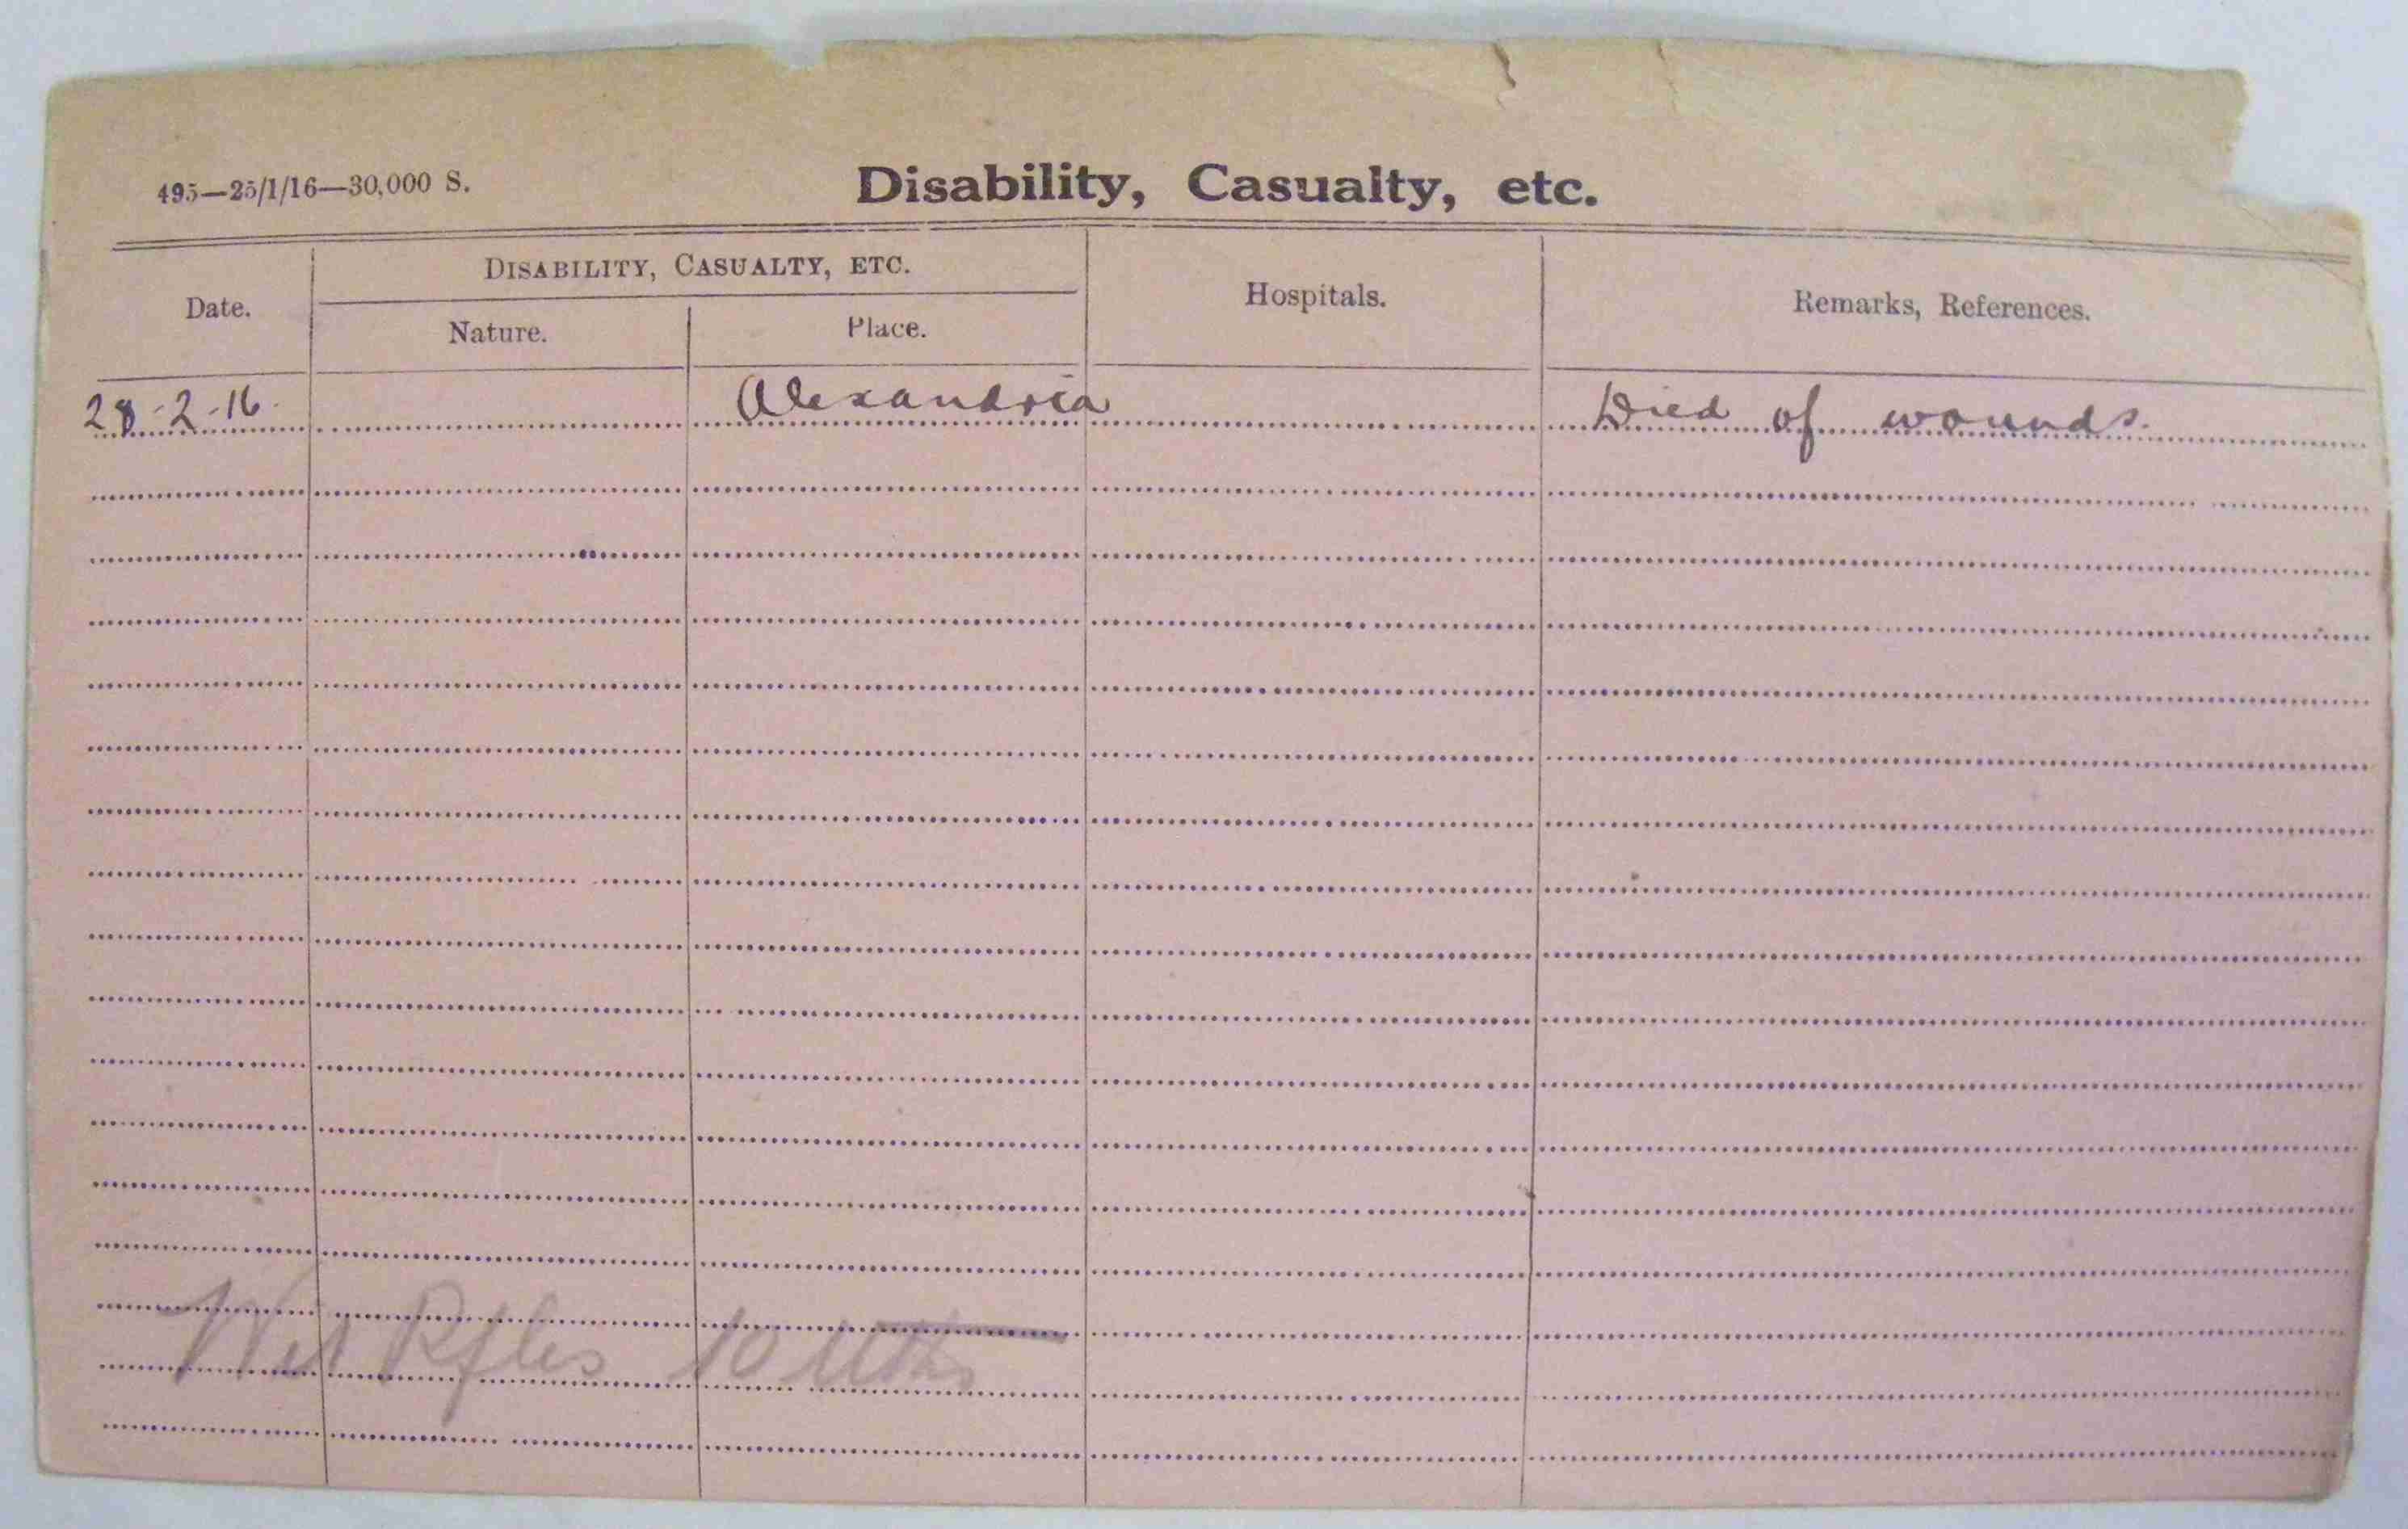 495—25/1/16—30,000 S.
Disability, Casualty, etc.
Date.
DISABILITY, CASUALTY, ETC.
Nature.
Place.
Hospitals.
Remarks, References.
28-2-16. Alexandria Died of wounds.
Rfles 10